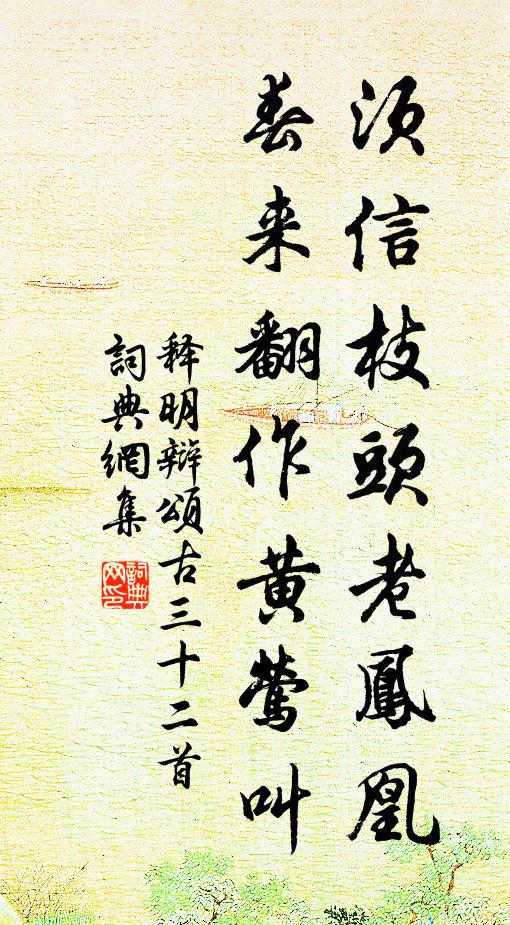 须信枝頭老鳳凰
春来翻作黄鶯叫
释明辩頌古三十二首
詞典網集
詞典網印